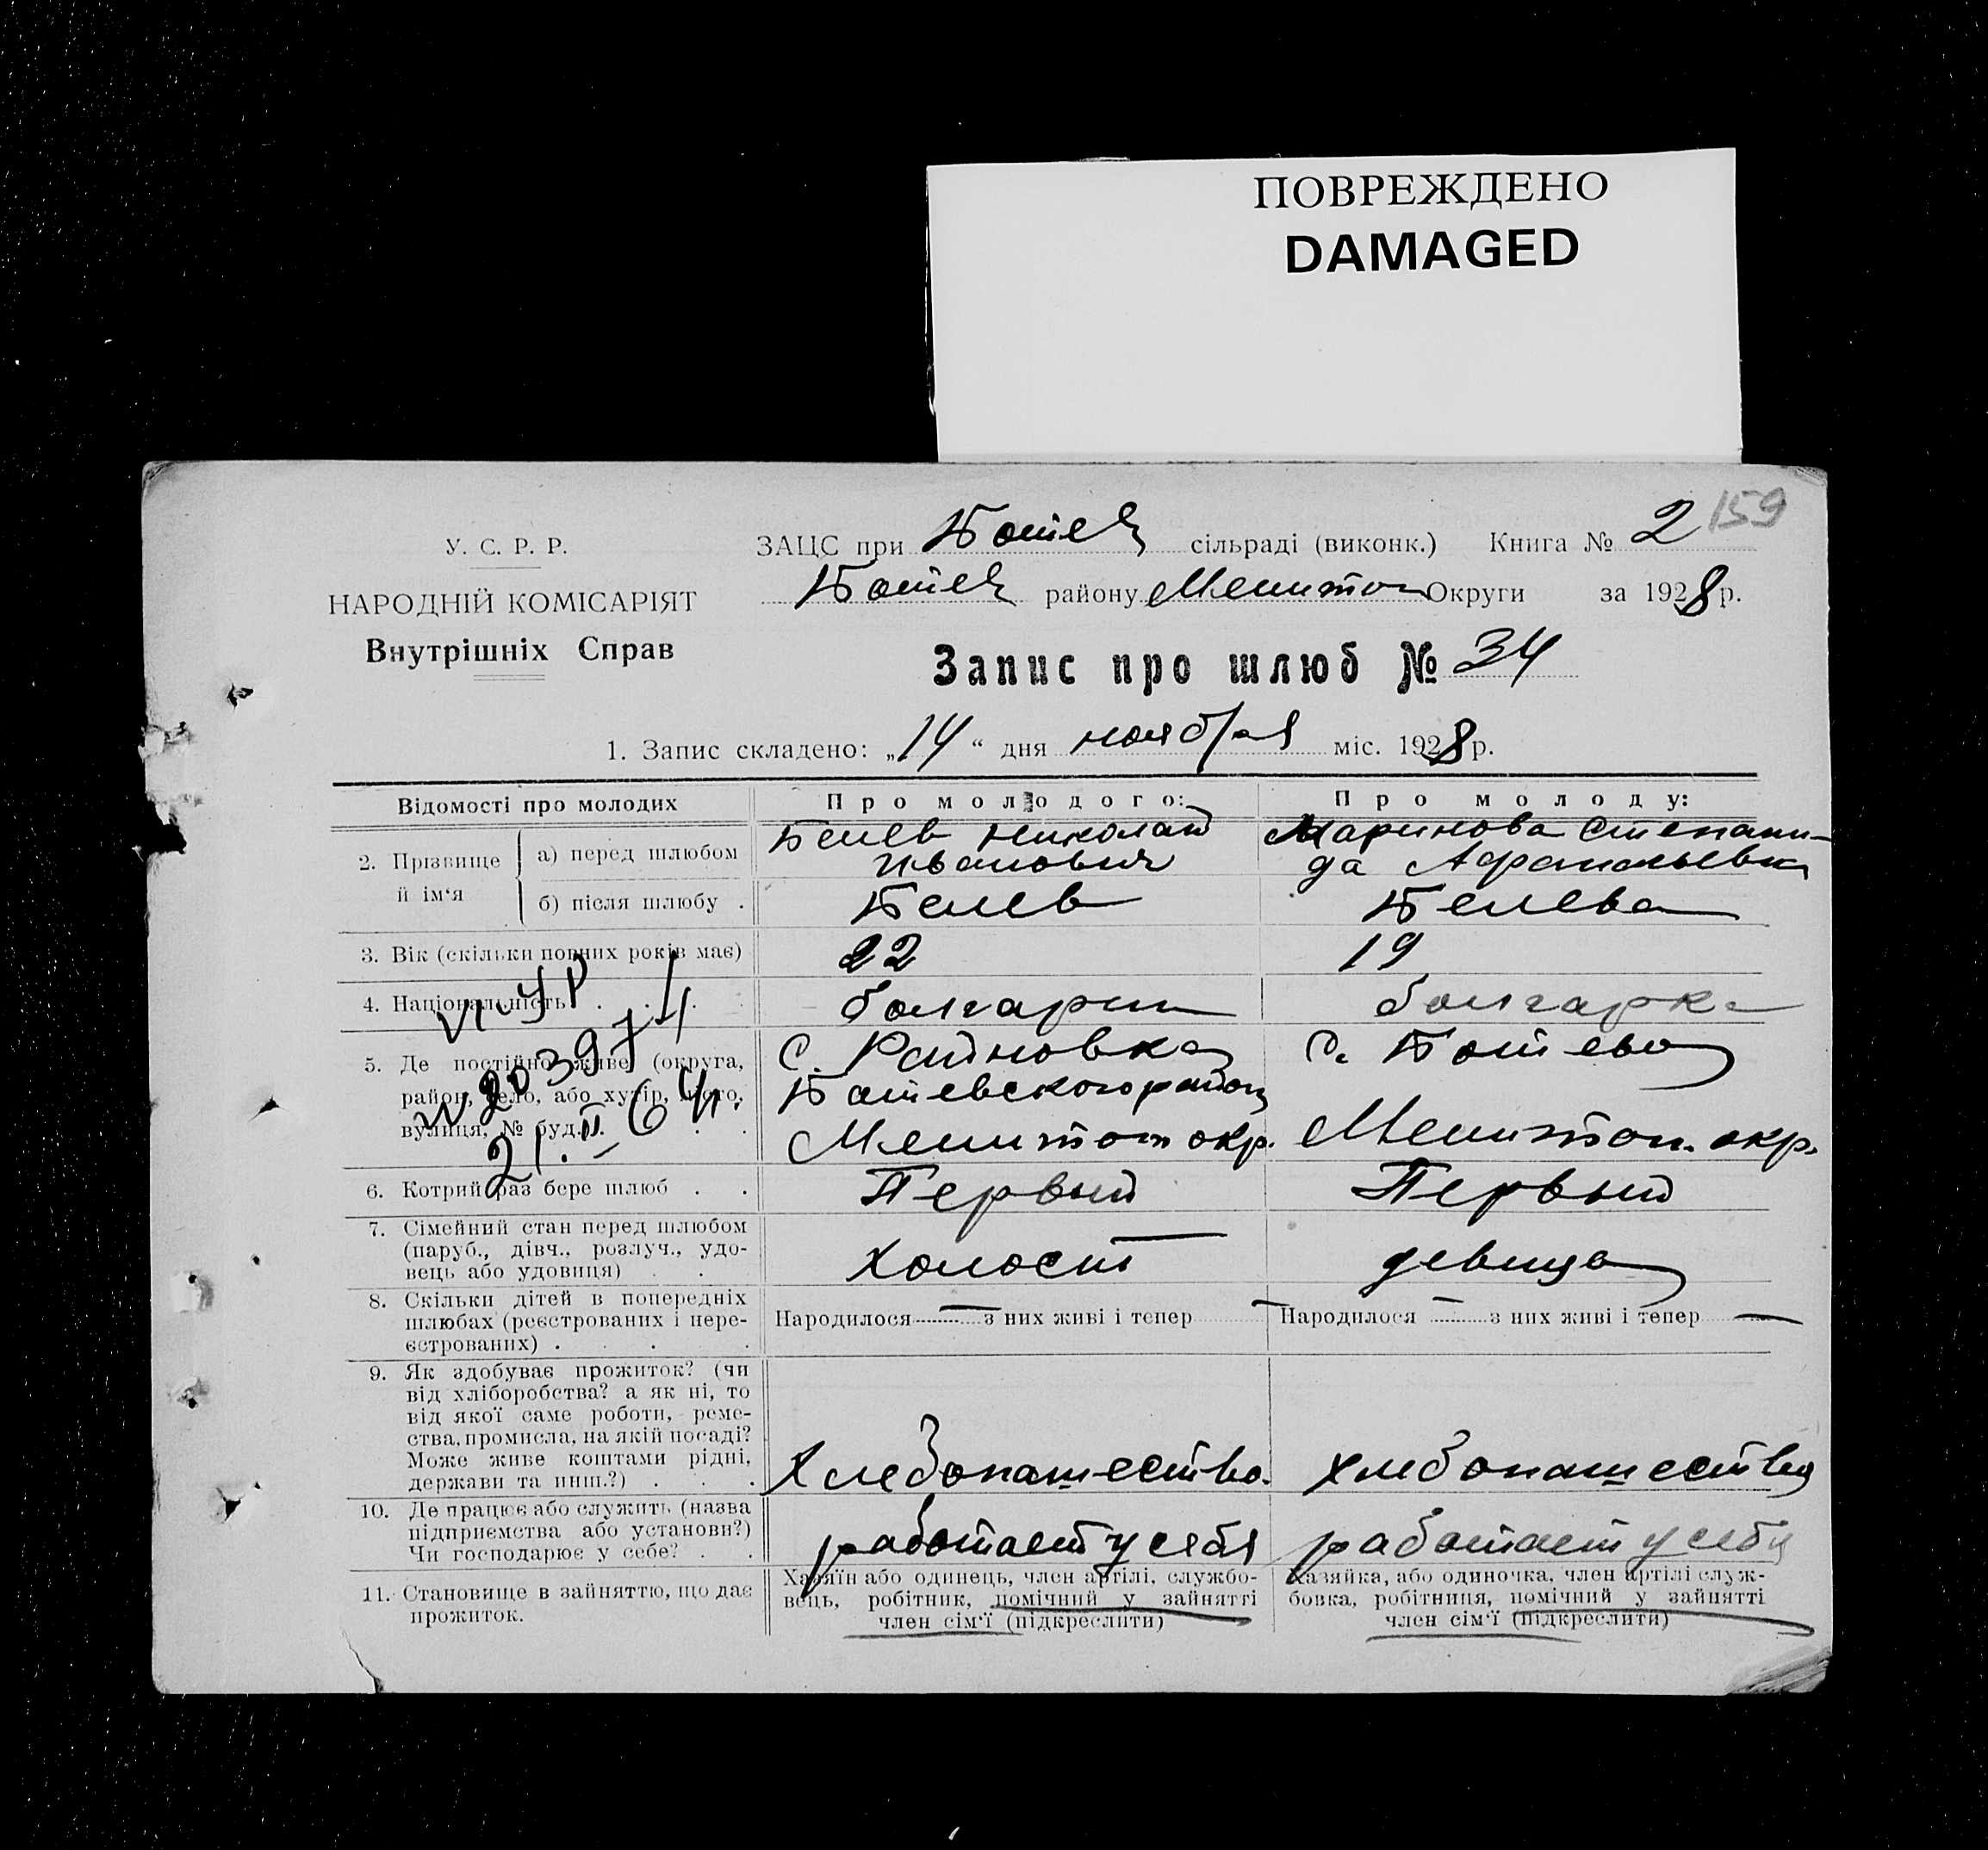 ПОВРЕЖДЕНО
DAMAGED
159
У. С. Р. Р.
НАРОДНІЙ КОМІСАРІЯТ
Внутрішніх Справ
ЗАЦС при Ботев сільраді (виконк.) Книга № 2
Ботев району Мелитоп Округи за 1928 р.
Запис про шлюб № 34
1. Запис складено: „14“ дня ноября міс. 1928 р.
Відомості про молодих
Про молодого:
Про молоду:
2. Прізвище й ім‘я
а) перед шлюбом
Белев Николай
Иванович
Маринова Степани-
да Афанасьевна
б) після шлюбу .
Белев
Белева
3. Вік (скільки повних років має)
22
19
4. Національність . . .
болгарин
болгарка
5. Де постійно живе (округа,
район, село, або хутір, місто,
вулиця, № буд.). . .
с. Райновка
Ботевского района
Мелитоп окр.
с. Ботево
Мелитоп. окр.
203974
21. II 64.
6. Котрий раз бере шлюб . .
Первый
Первый
7. Сімейний стан перед шлюбом
(паруб., дівч., розлуч., удо-
вець або удовиця) . .
холост
девица
8. Скільки дітей в попередніх
шлюбах (реєстрованих і нере-
єстрованих) . . . .
Народилося — з них живі і тепер —
Народилося — з них живі і тепер —
9. Як здобуває прожиток? (чи
від хліборобства? а як ні, то
від якої саме роботи, реме-
ства, промисла, на якій посаді?
Може живе коштами рідні,
держави та инш.?) . . .
Хлебопашество.
хлебопашество
10. Де працює або служить (назва
підприємства або установи?)
Чи господарює у себе? . .
работает у себя
работает у себя
11. Становище в зайняттю, що дає
прожиток.
Хазяїн або одинець, член артілі, службо-
вець, робітник, помічний у зайнятті
член сім‘ї (підкреслити)
Хазяйка, або одиночка, член артілі служ-
бовка, робітниця, помічний у зайнятті
член сім‘ї (підкреслити)